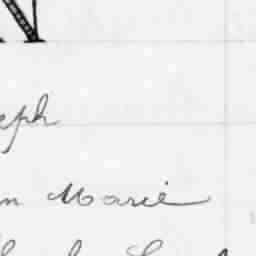 N
eph
n Marie